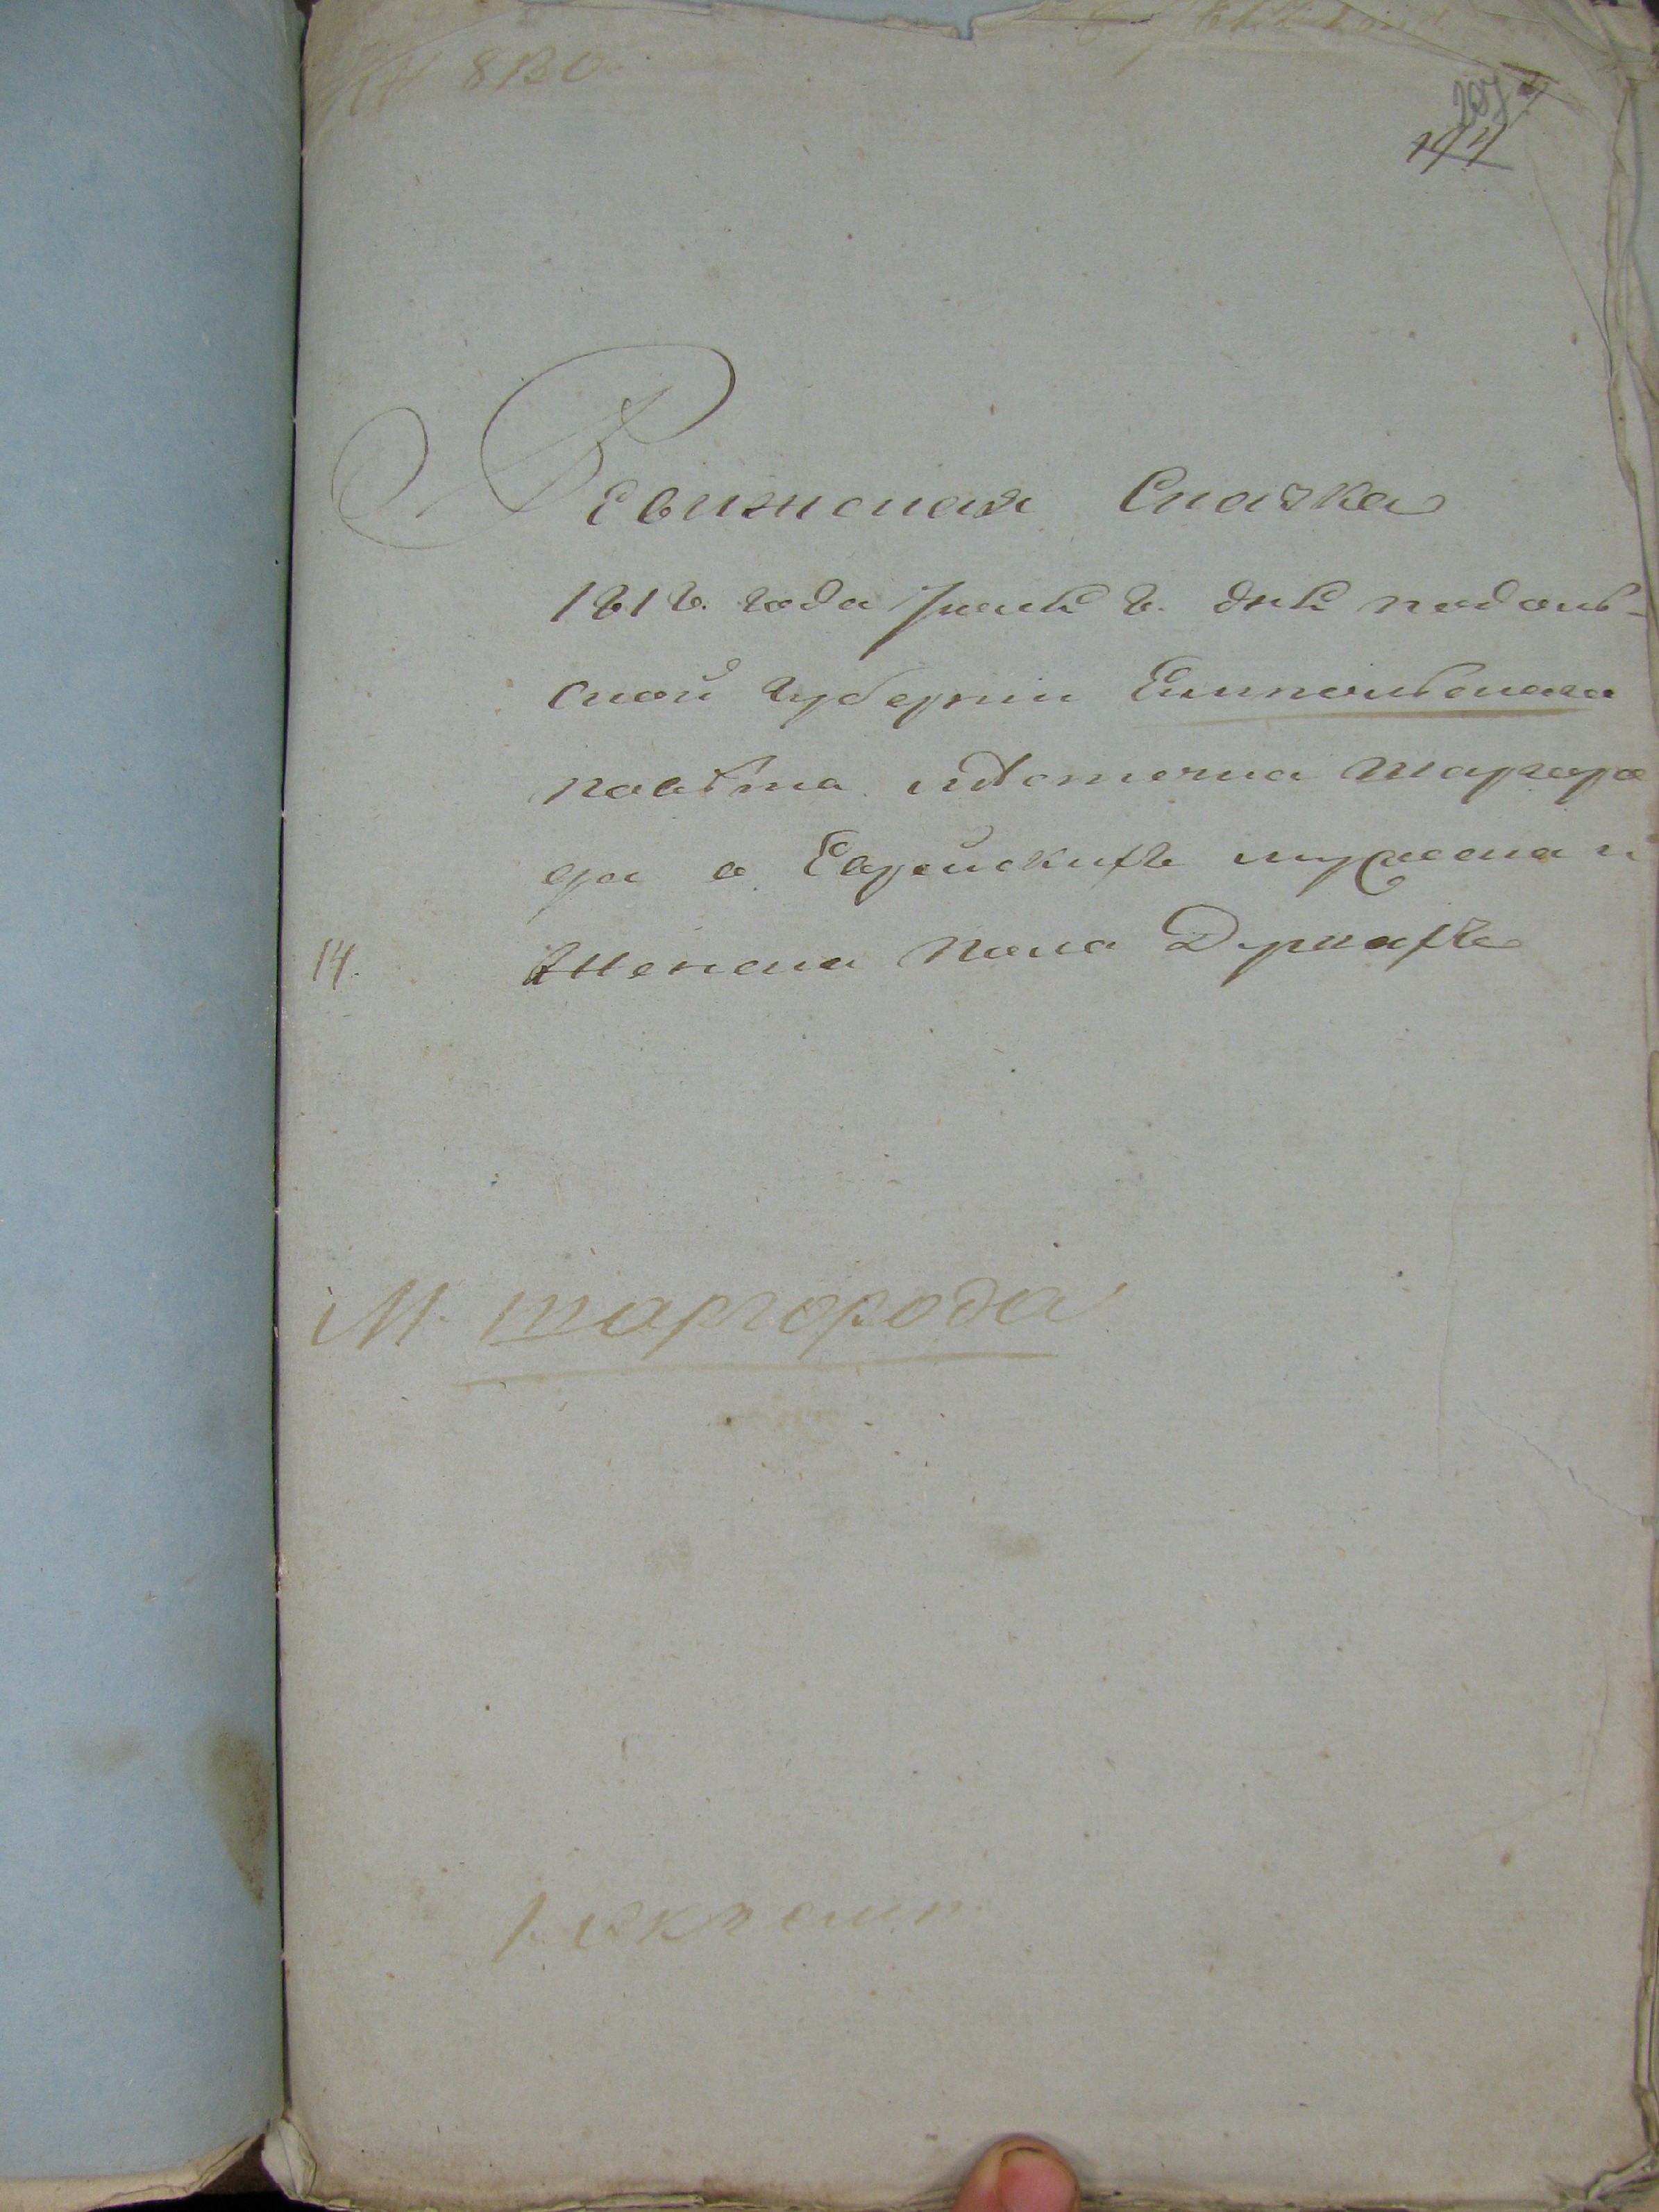 207
144
Ревижская Сказка
1818. года Iюля 8. дня подоль-
ской губернiи Ямпольскага
повѣта мѣстечка Шаргоро
да о Еврейскихъ мужеска и
14.
Женска пола Душахъ
М. шаргорода